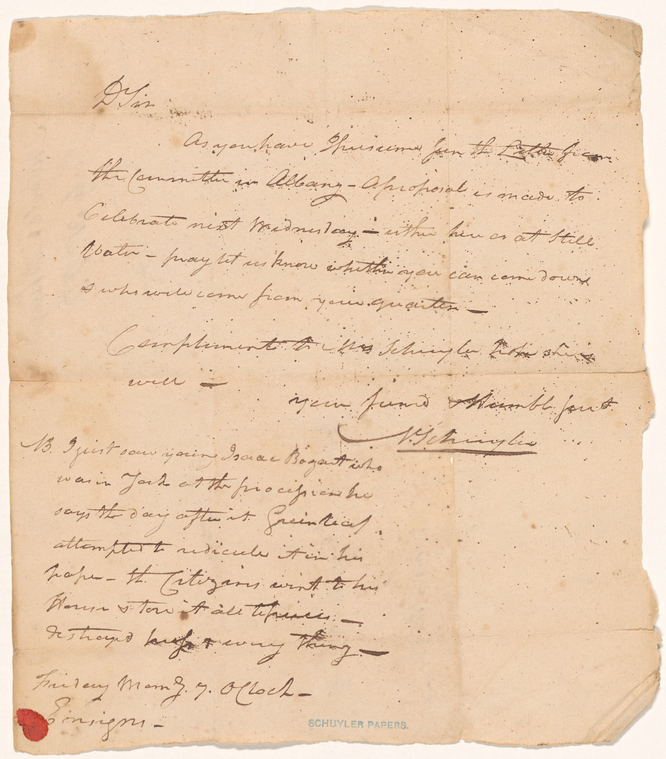 D Sir
As you have I presume seen the Letter from
the Committee in Albany - A proposal is made to
Celebrate next Wednesday - either here or at Still
Water - pray let us know whether you can come down
& who will come from your quarter -
Compliments to Mrs Schuyler hope she is
well -
your friend & Humble servt
N Schuyler
NB. I just saw young Isaac Bogart who
was in York at the procession he
says the day after it Greenleaf
attempted to redicule it in his
paper - the Citizens went to his
House & tore it all to pieces -
destroyed & every thing -
Friday Morng. 7. OClock -
Ensigns -
SCHUYLER PAPERS.